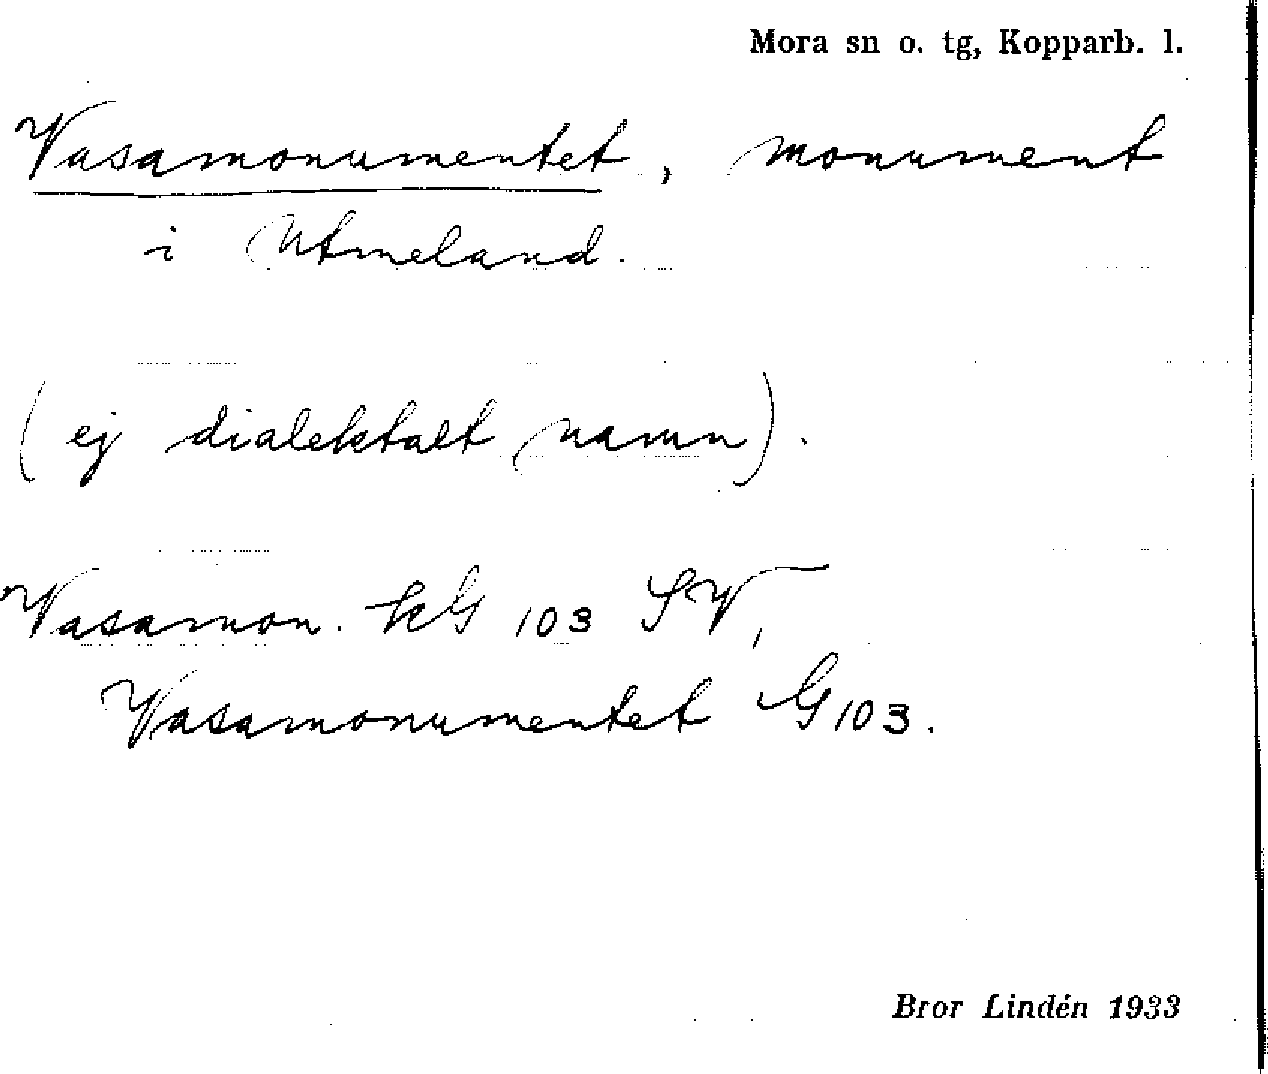 Mora sn o. tg, Kopparb. l.
Vasamonumentet, monument
i Utmeland.
(ej dialektalt namn).
Vasamon. kG 103 SV,
Vasamonumentet G 103.
Bror Lindén 1933